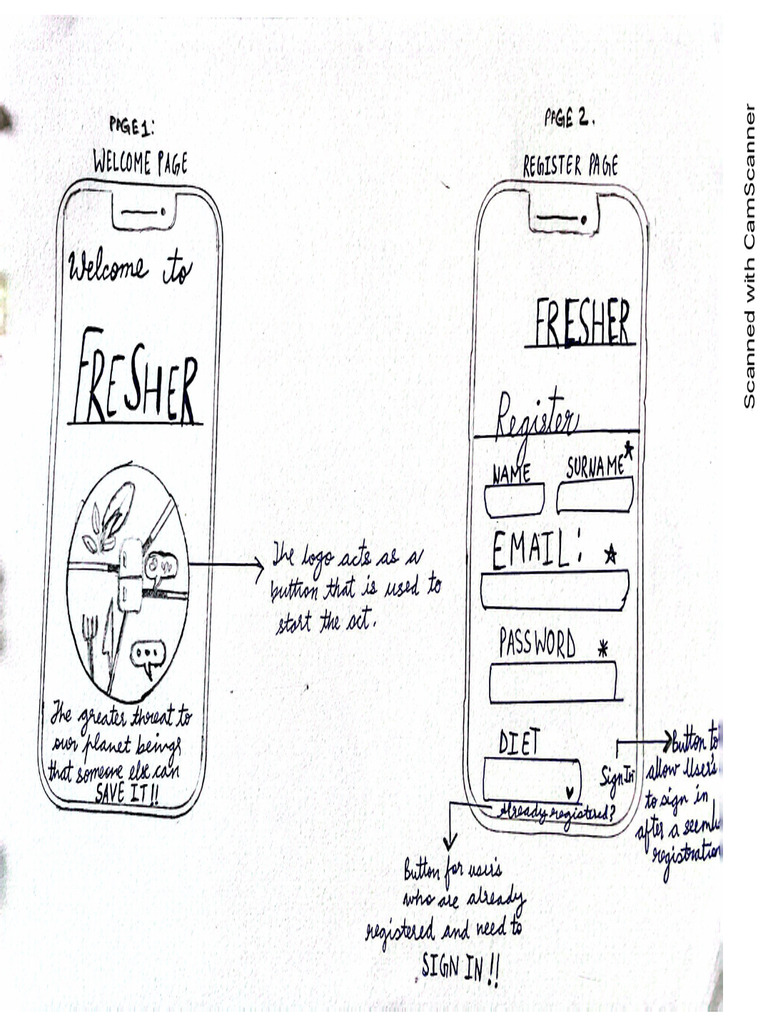 PAGE 1:
WELCOME PAGE
Welcome to
FRESHER
The logo acts as a
button that is used to
start the act.
The greater threat to
our planet beings
that someone else can
SAVE IT!!
PAGE 2.
REGISTER PAGE
FRESHER
Register
NAME SURNAME*
EMAIL: *
PASSWORD *
DIET
Sign In
Already registered?
Button to
allow User's
to sign in
after a
registration
Button for user's
who are already
registered and need to
SIGN IN!!
Scanned with CamScanner